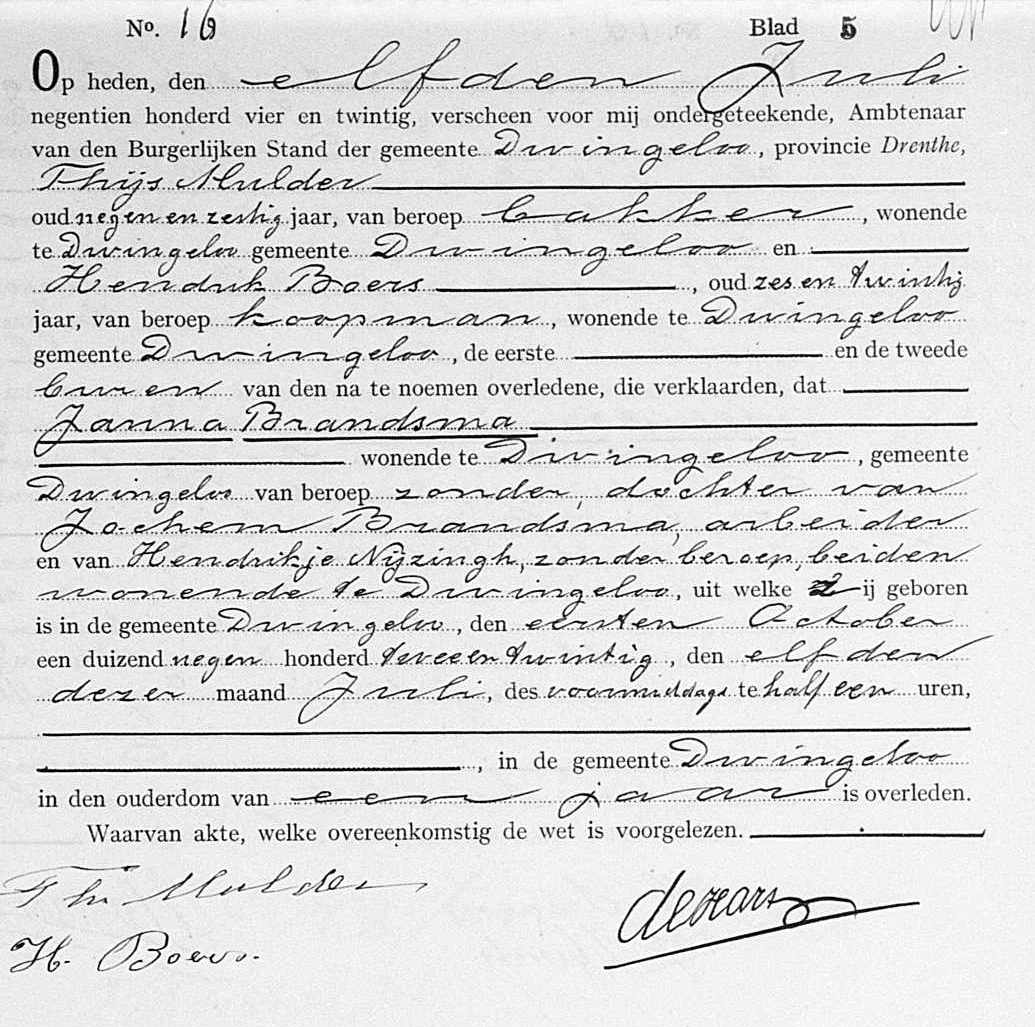 No. 16 Blad 5
Op heden, den elfden Juli
negentien honderd vier en twintig, verscheen voor mij ondergeteekende, Ambtenaar
van den Burgerlijken Stand der gemeente Dwingeloo, provincie Drenthe,
Thijs Mulder
oud negen en zestig jaar, van beroep bakker, wonende
te Dwingeloo gemeente Dwingeloo en
Hendrik Boers, oud zes en twintig
jaar, van beroep koopman, wonende te Dwingeloo
gemeente Dwingeloo, de eerste en de tweede
buren van den na te noemen overledene, die verklaarden, dat
Janna Brandsma
wonende te Dwingeloo, gemeente
Dwingeloo van beroep zonder, dochter van
Jochem Brandsma, arbeider
en van Hendrikje Nijzingh, zonder beroep, beiden
wonende te Dwingeloo, uit welke zij geboren
is in de gemeente Dwingeloo, den eersten October
een duizend negen honderd twee en twintig, den elfden
dezer maand Juli, des voormiddags te half een uren,
, in de gemeente Dwingeloo
in den ouderdom van een jaar is overleden.
Waarvan akte, welke overeenkomstig de wet is voorgelezen.
Th Mulder
H. Boers.